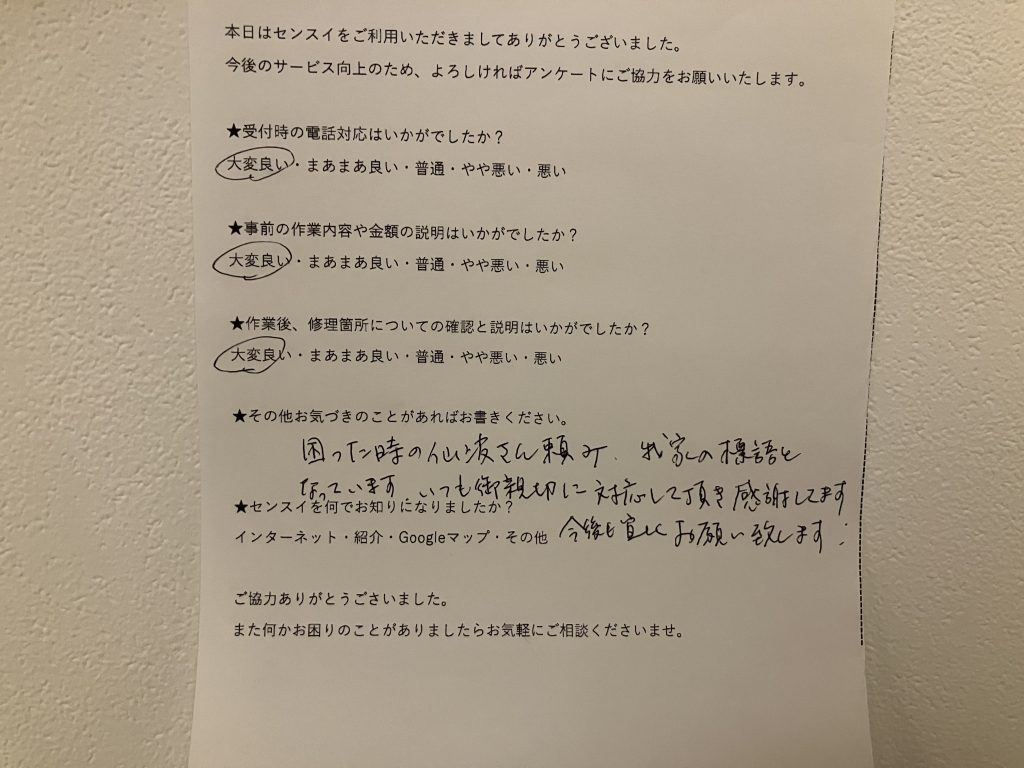 本日はセンスイをご利用いただきましてありがとうございました。
今後のサービス向上のため、よろしければアンケートにご協力をお願いいたします。
★受付時の電話対応はいかがでしたか？
大変良い・まあまあ良い・普通・やや悪い・悪い
★事前の作業内容や金額の説明はいかがでしたか？
大変良い・まあまあ良い・普通・やや悪い・悪い
★作業後、修理箇所についての確認と説明はいかがでしたか？
大変良い・まあまあ良い・普通・やや悪い・悪い
★その他お気づきのことがあればお書きください。
困った時の仙波さん頼み、我家の標語と
なっています。いつも御親切に対応して頂き感謝してます
★センスイを何でお知りになりましたか？
インターネット・紹介・Googleマップ・その他
今後も宜しくお願い致します!
ご協力ありがとうごさいました。
また何かお困りのことがありましたらお気軽にご相談くださいませ。